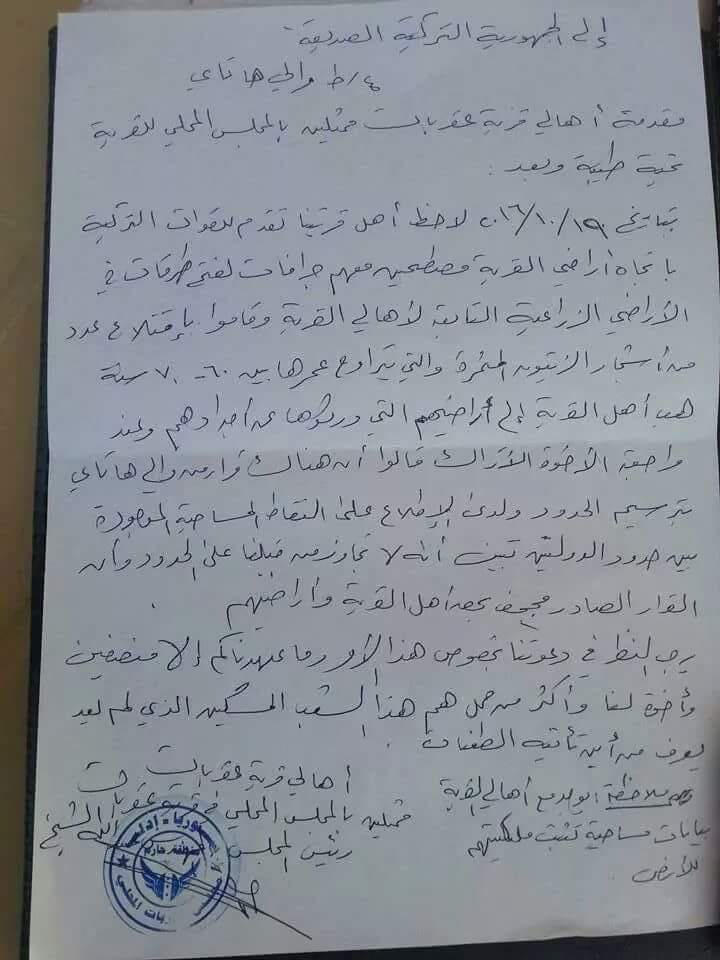 إلى الجمهورية التركية الصديقة
ط والي هاتاي
مقدمة أهالي قرية عقربات ممثلين بالمجلس المحلي للقرية
تحية طيبة وبعد :
بتاريخ ٢٠١٦/١٠/١٩ لاحظ أهل قريتنا تقدم للقوات التركية
باتجاه أراضي القرية مصطحبين معهم جرافات لفتح طرقات في
الأراضي الزراعية التابعة لأهالي القرية وقاموا بإقتلاع عدد
من أشجار الزيتون المثمرة والتي يتراوح عمرها بين ٦٠ - ٧٠ سنة
هب أهل القرية إلى أراضيهم التي ورثوها عن أجدادهم وعند
مراجعة الأخوة الأتراك قالوا أن هناك قرار من والي هاتاي
بترسيم الحدود ولدى الإطلاع على النقاط المساحية الموجودة
بين حدود الدولتين تبين أنه لا تجاوز من قبلنا على الحدود وأن
القرار الصادر مجحف بحق أهل القرية وأراضيهم .
يرجى النظر في دعوتنا بخصوص هذا الأمر وما عهدناكم إلا منصفين
وأخوة لنا وأكثر من حمل هم هذا الشعب المسكين الذي لم يعد
يعرف من أين تأتيه الطعنات .
أهالي قرية عقربات
ممثلين بالمجلس المحلي في قرية عقربات
رئيس المجلس الشيخ
ملاحظة : يوجد مع أهالي القرية
بيانات مساحية تثبت ملكيتهم
للأرض .
سوريا - إدلب
منطقة حارم